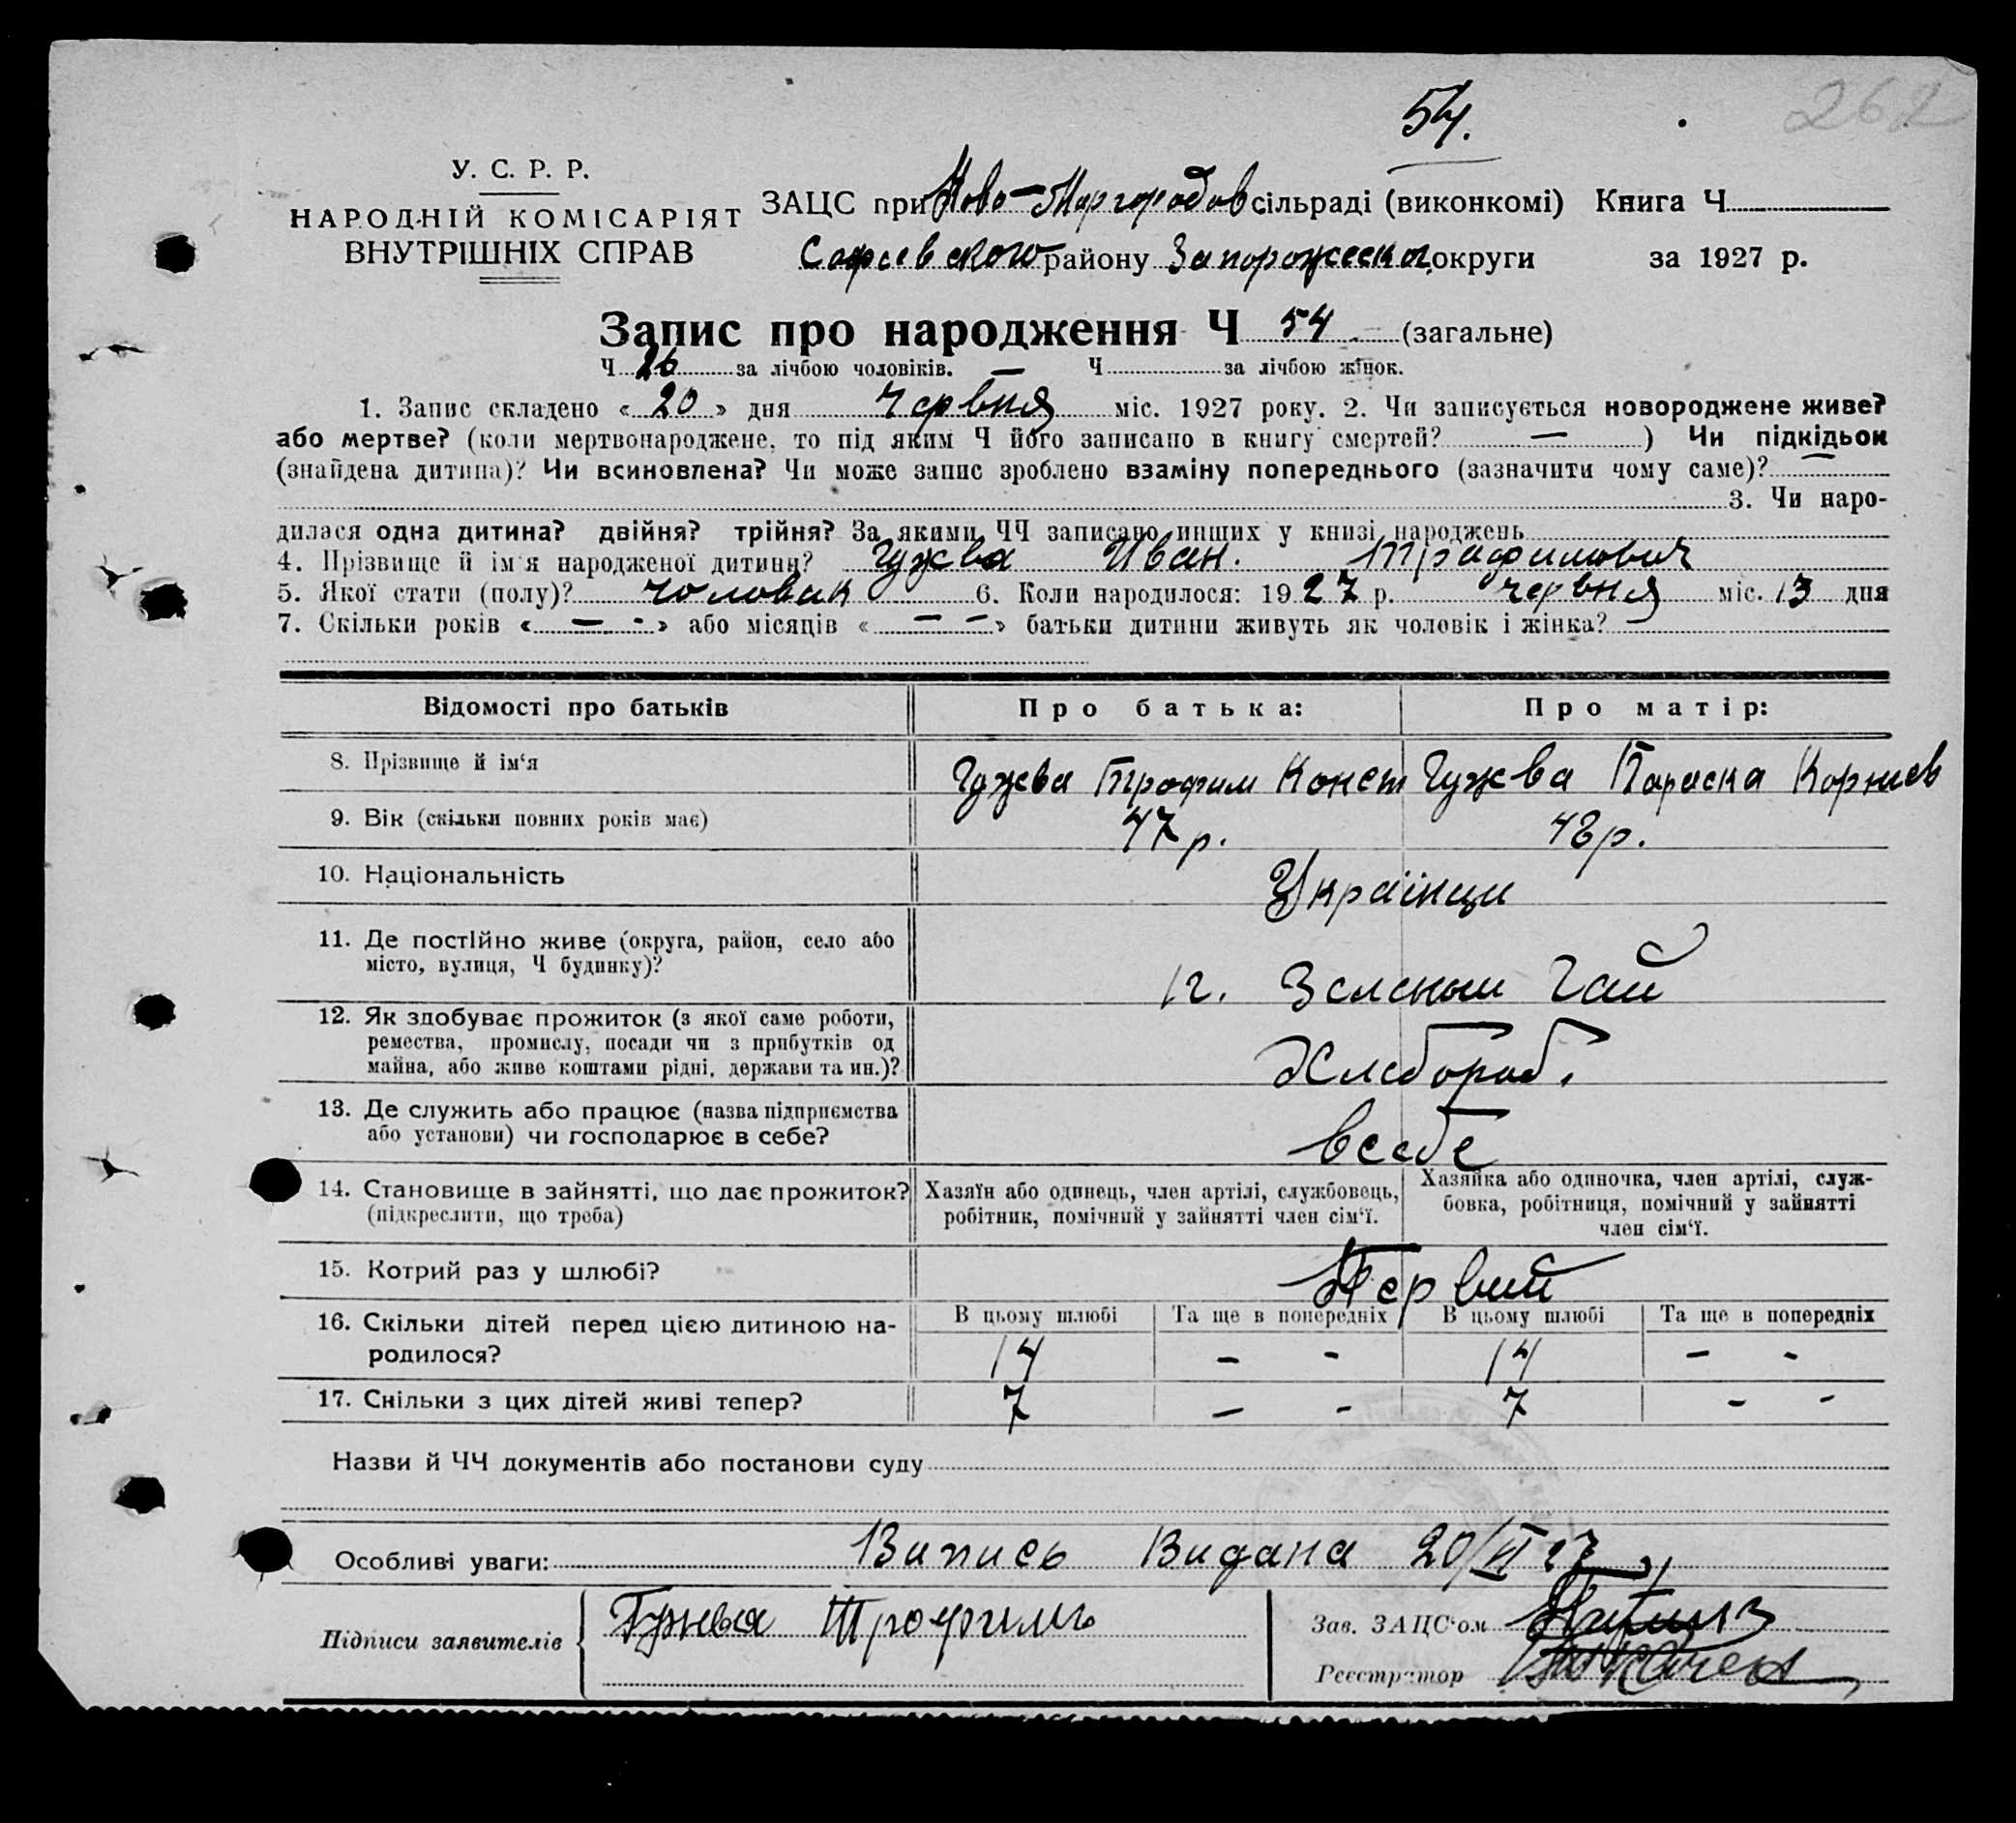 54.
262
У. С. Р. Р.
НАРОДНІЙ КОМІСАРІЯТ
ВНУТРІШНІХ СПРАВ
ЗАЦС при Ново-Миргородов сільраді (виконкомі) Книга Ч
Софиевского району Запорожской округи за 1927 р.
Запис про народження Ч 54 (загальне)
Ч 26 за лічбою чоловіків. — Ч за лічбою жінок.
1. Запис складено « 20 » дня Червня міс. 1927 року. 2. Чи записується новороджене живе?
або мертве? (коли мертвонароджене, то під яким Ч його записано в книгу смертей? — ) Чи підкідьок
(знайдена дитина)? Чи всиновлена? Чи може запис зроблено взаміну попереднього (зазначити чому саме)? —
3. Чи наро-
дилася одна дитина? двійня? трійня? За якими ЧЧ записано инших у книзі народжень
4. Прізвище й ім'я народженої дитини? Гужва Иван. Трафимович
5. Якої стати (полу)? чоловик 6. Коли народилося: 1927 р. червня міс. 13 дня
7. Скільки років « — - » або місяців « — — » батьки дитини живуть як чоловік і жінка? —
Відомості про батьків Про батька: Про матір:
8. Прізвище й ім‘я Гужва Трофим Конст Гужва Параска Корниев
9. Вік (скільки повних років має) 47 р. 43 р.
10. Національність Українци
11. Де постійно живе (округа, район, село або
місто, вулиця, Ч будинку)? Зеленыи Гай
12. Як здобуває прожиток (з якої саме роботи,
ремества, промислу, посади чи з прибутків од
майна, або живе коштами рідні, держави та ин.)? Хлебороб.
13. Де служить або працює (назва підприємства
або установи) чи господарює в себе? всебе
14. Становище в зайнятті, що дає прожиток?
(підкреслити, що треба)
Хазяїн або одинець, член артілі, службовець,
робітник, помічний у зайнятті член сім‘ї.
Хазяйка або одиночка, член артілі, служ-
бовка, робітниця, помічний у зайнятті
член сім‘ї.
15. Котрий раз у шлюбі? Первий
16. Скільки дітей перед цією дитиною на-
родилося?
В цьому шлюбі Та ще в попередніх В цьому шлюбі Та ще в попередніх
14 — - 14 — -
17. Скільки з цих дітей живі тепер? 7 — - 7 - -
Назви й ЧЧ документів або постанови суду
Особливі уваги: Випись Видана 20/VI 27
Підписи заявителів Гужва Трофимъ
Зав. ЗАЦС‘ом
Реєстратор